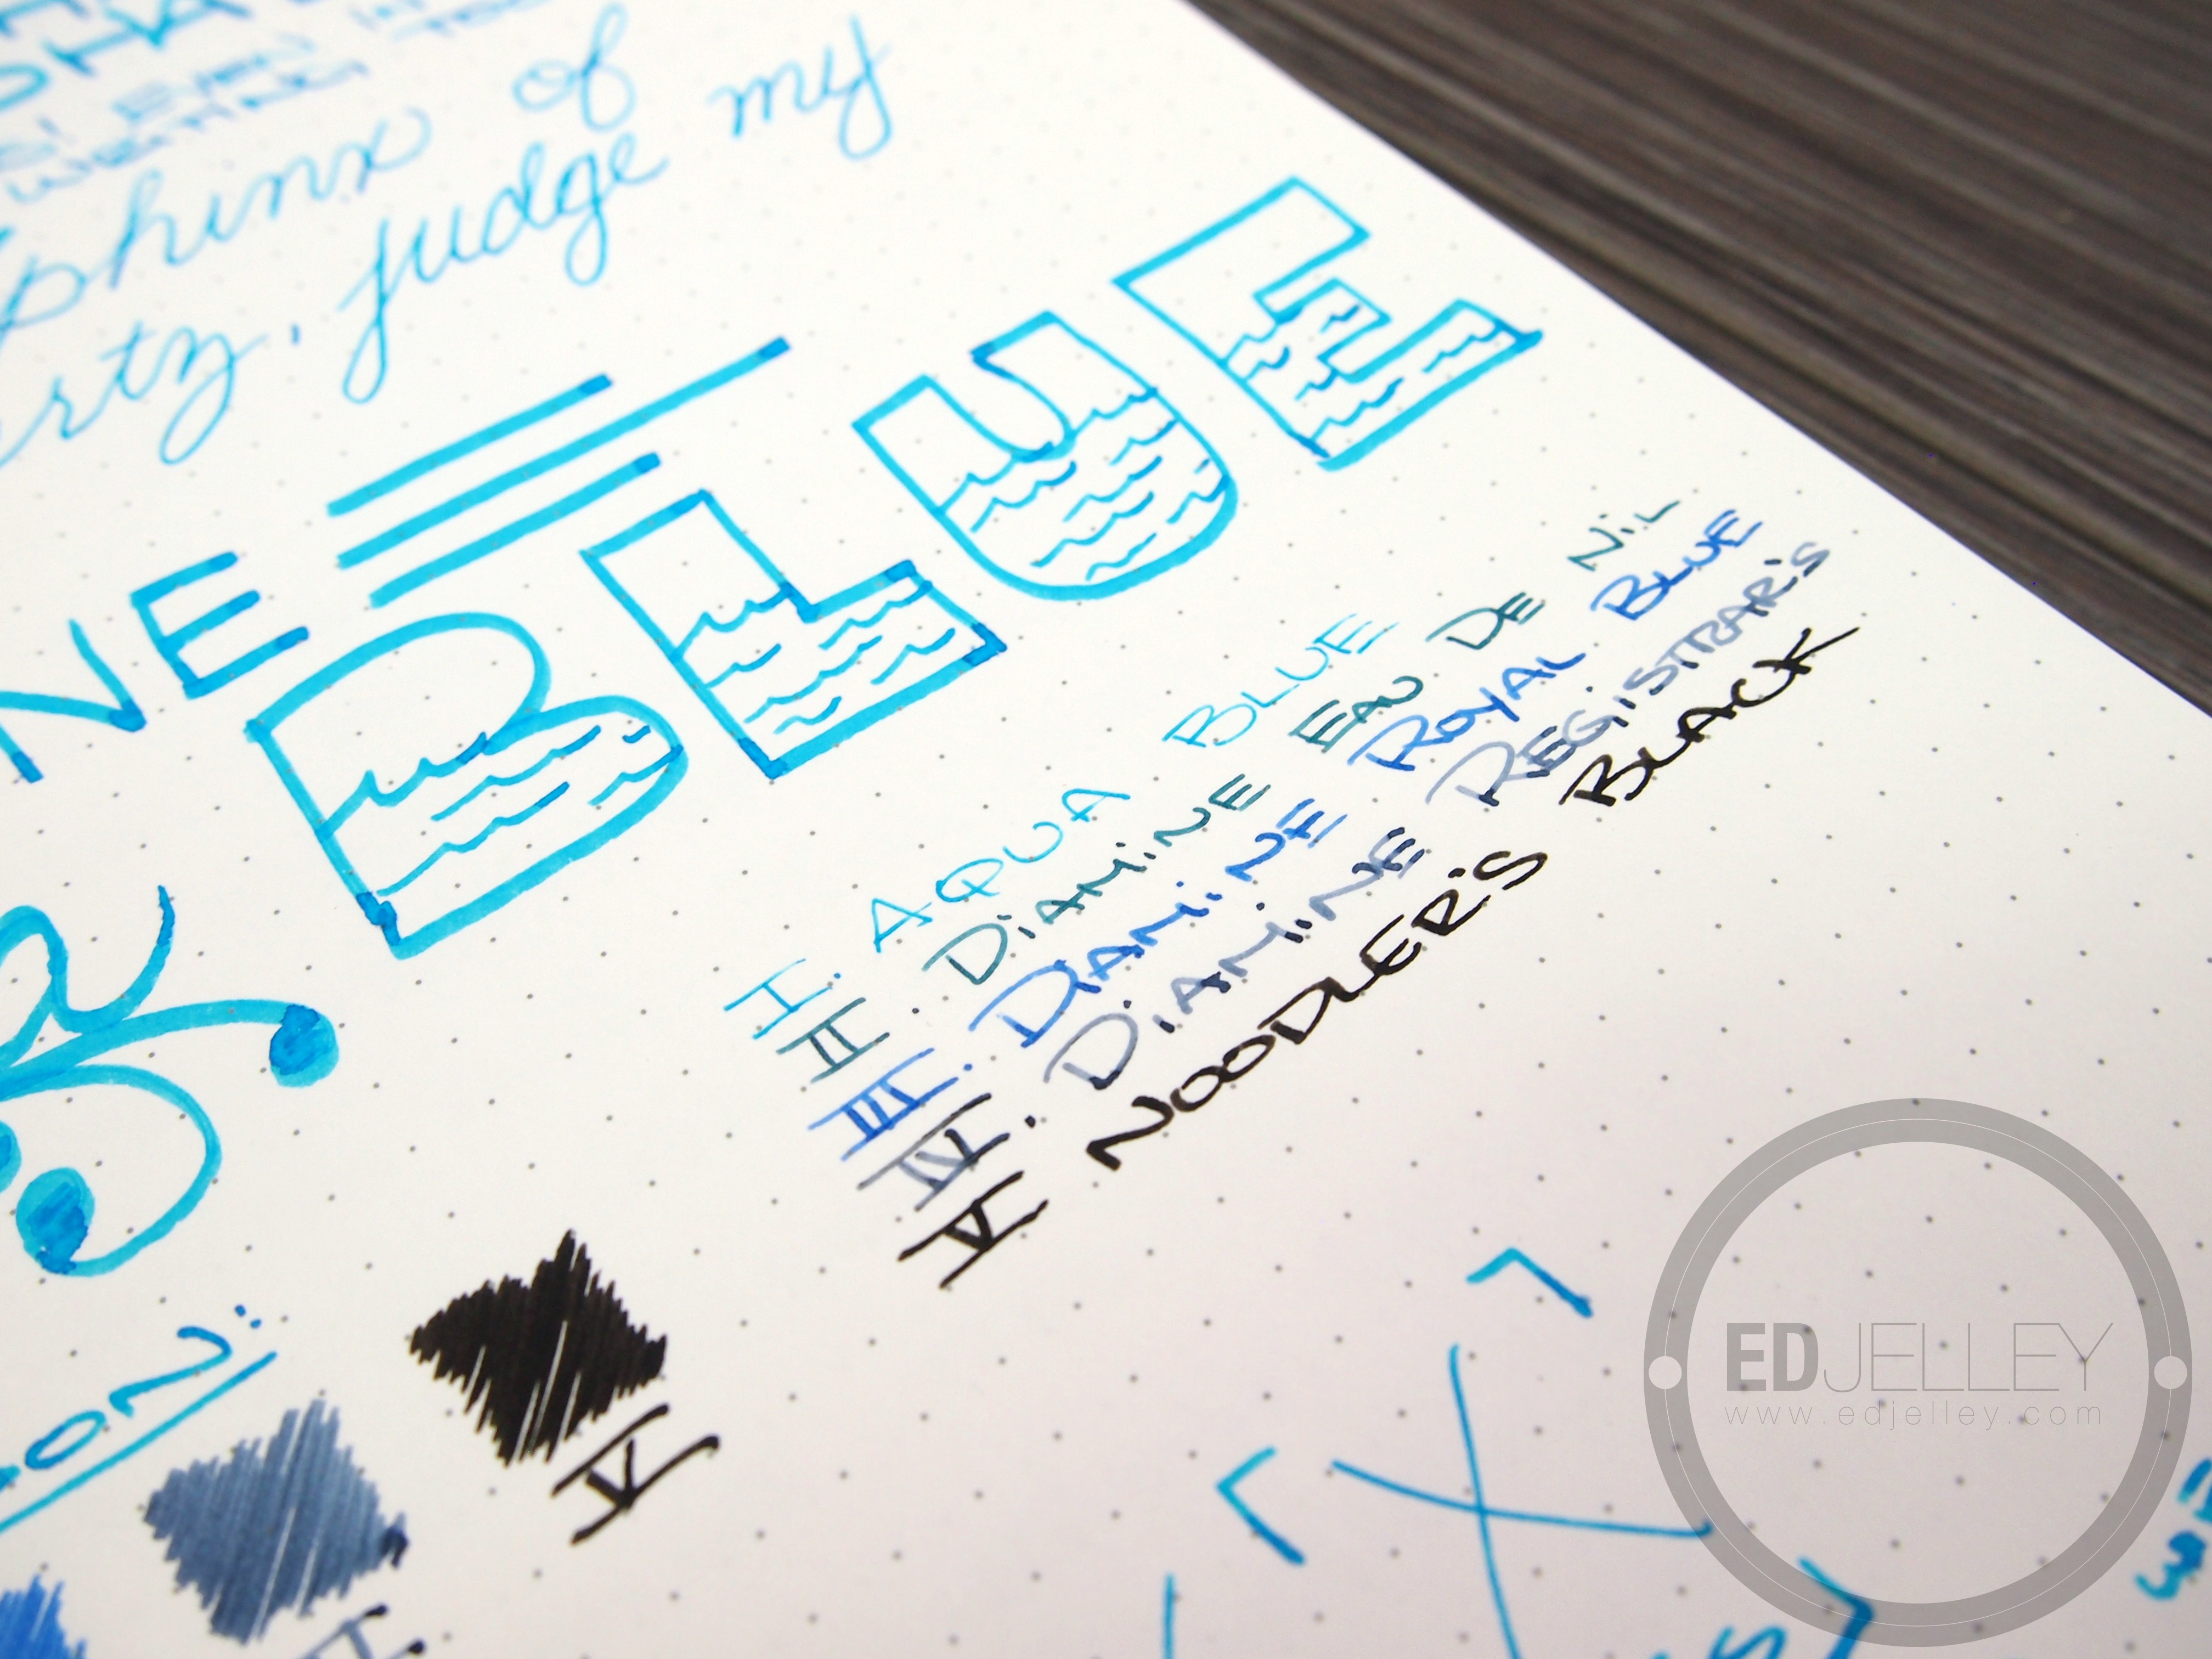 of my
judge
NE
BLUE
I. AQUA BLUE
II. DIAMINE EAU DE NIL
III. DIAMINE ROYAL BLUE
IV. DIAMINE REGISTRAR'S
V. NOODLER'S BLACK
V
X
EDJELLEY
www.edjelley.com